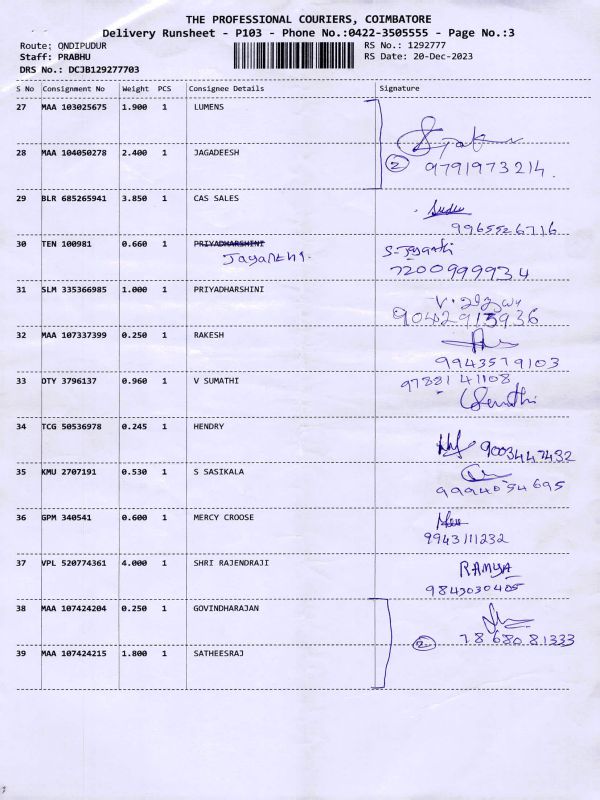 THE PROFESSIONAL COURIERS, COIMBATORE
Delivery Runsheet - P103 - Phone No.:0422-3505555 - Page No.:3
Route: ONDIPUDUR RS No.: 1292777
Staff: PRABHU RS Date: 20-Dec-2023
DRS No.: DCJB129277703
S No Consignment No Weight PCS Consignee Details Signature
27 MAA 103025675 1.900 1 LUMENS
28 MAA 104050278 2.400 1 JAGADEESH
2 9791973214.
29 BLR 685265941 3.850 1 CAS SALES
9965526716
30 TEN 100981 0.660 1 PRIYADHARSHINI S-Jayanthi
Jayanthi. 7200999934
31 SLM 335366985 1.000 1 PRIYADHARSHINI
32 MAA 107337399 0.250 1 RAKESH
9943579103
33 DTY 3796137 0.960 1 V SUMATHI
Sumathi
34 TCG 50536978 0.245 1 HENDRY
9003447432
35 KMU 2707191 0.530 1 S SASIKALA
9994054695
36 GPM 340541 0.600 1 MERCY CROOSE
9943111232
37 VPL 520774361 4.000 1 SHRI RAJENDRAJI RAMYA
9843030405
38 MAA 107424204 0.250 1 GOVINDHARAJAN
2 7868081333
39 MAA 107424215 1.800 1 SATHEESRAJ